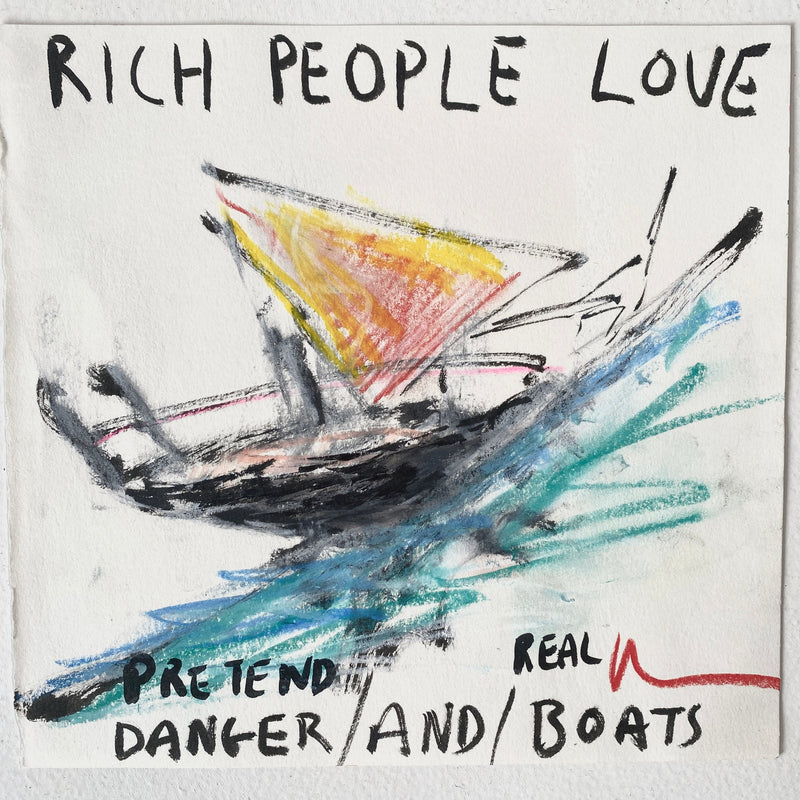 RICH PEOPLE LOVE
PRETEND REAL
DANGER/AND/BOATS